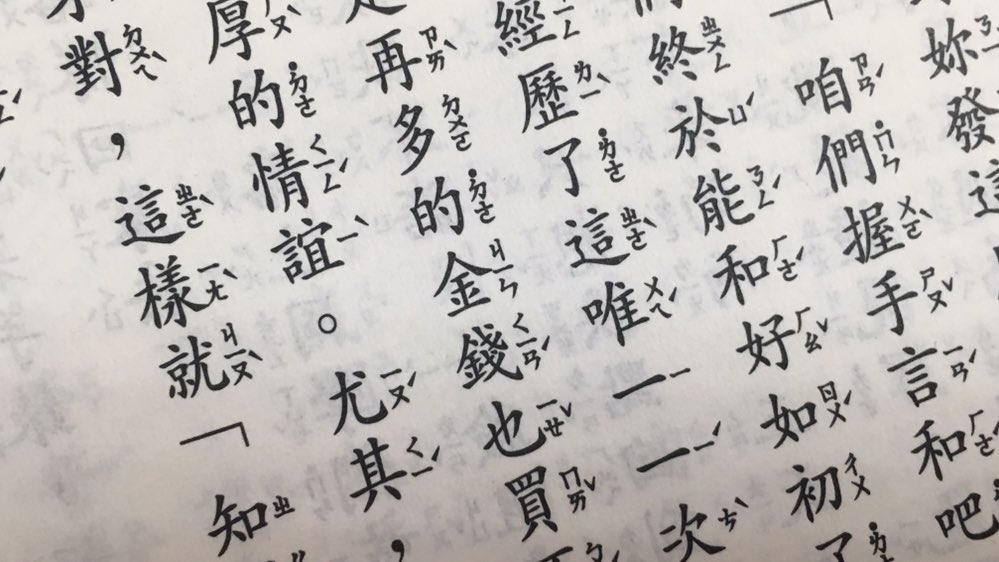 妳發這
「咱們握手言和吧
終於能和好如初了
經歷了這唯一一次
再多的金錢也買
厚的情誼。尤其，
對，這樣就「知